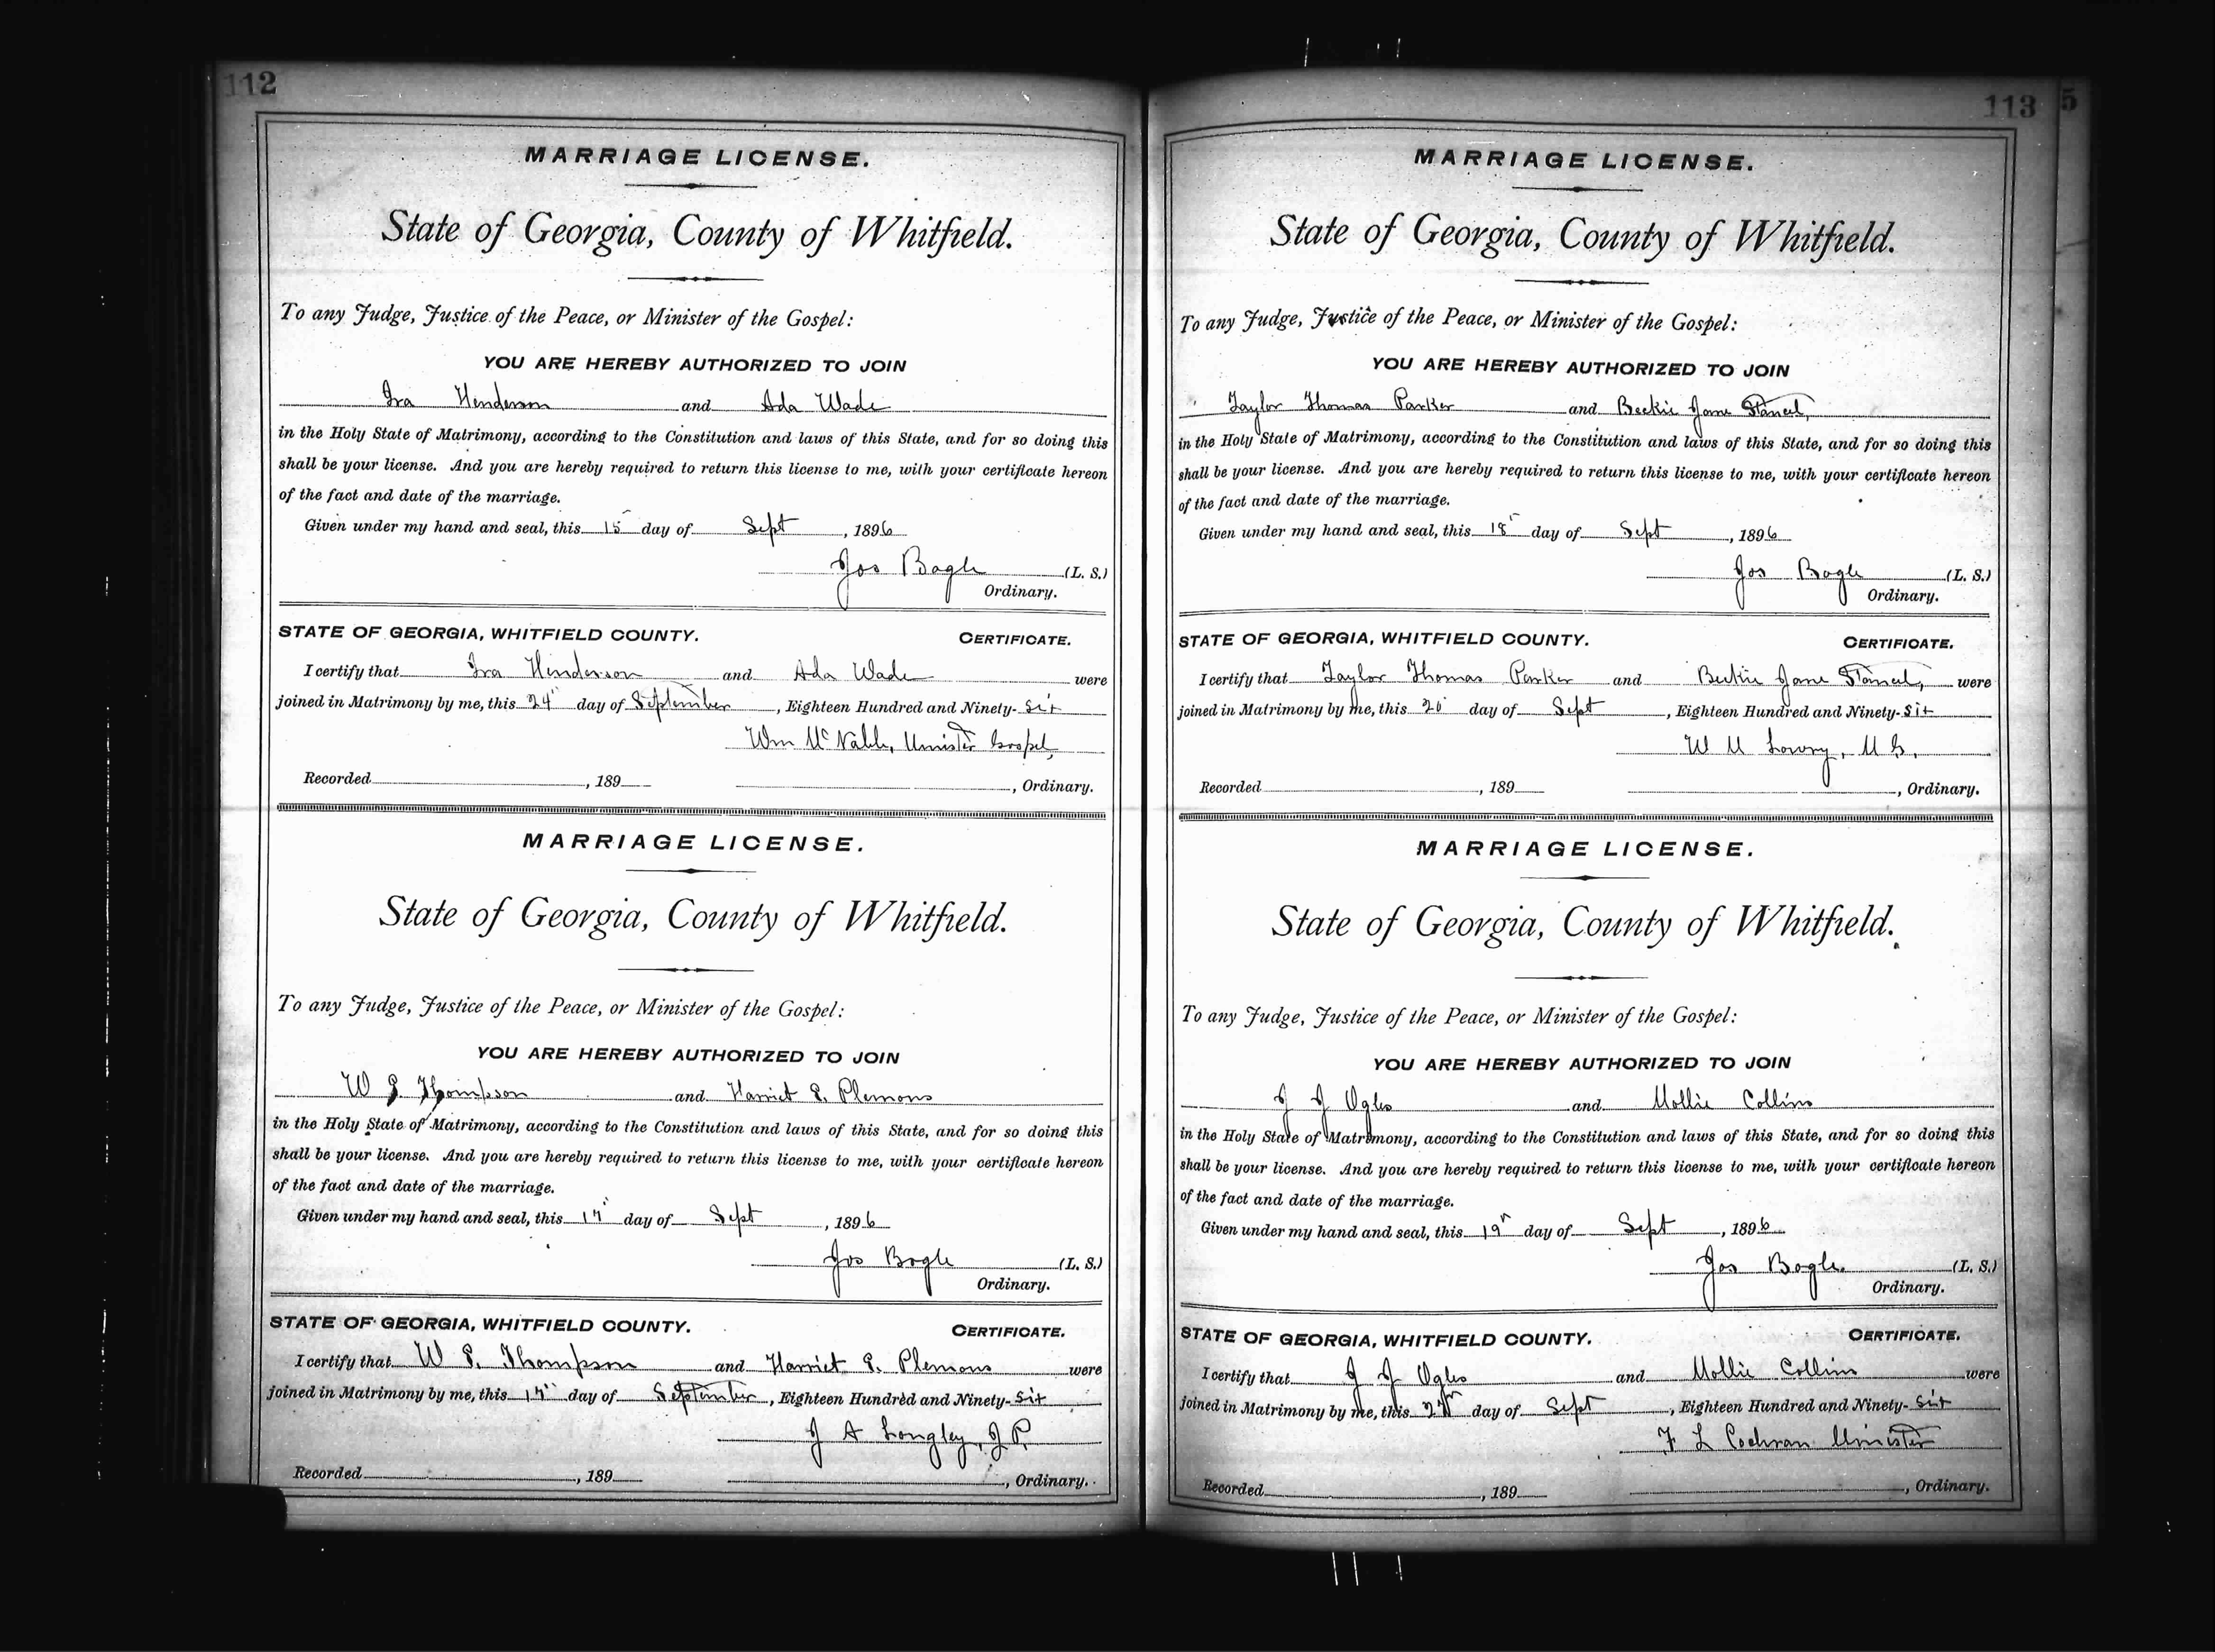 112
MARRIAGE LICENSE.
State of Georgia, County of Whitfield.
To any Judge, Justice of the Peace, or Minister of the Gospel:
YOU ARE HEREBY AUTHORIZED TO JOIN
Ira Henderson and Ada Wade
in the Holy State of Matrimony, according to the Constitution and laws of this State, and for so doing this
shall be your license. And you are hereby required to return this license to me, with your certificate hereon
of the fact and date of the marriage.
Given under my hand and seal, this 15 day of Sept, 1896
Jos Bogle (L. S.)
Ordinary.
STATE OF GEORGIA, WHITFIELD COUNTY. CERTIFICATE.
I certify that Ira Henderson and Ada Wade were
joined in Matrimony by me, this 24" day of September, Eighteen Hundred and Ninety-Six
Wm McNabb, Minister Gospel,
Recorded, 189 , Ordinary.
MARRIAGE LICENSE.
State of Georgia, County of Whitfield.
To any Judge, Justice of the Peace, or Minister of the Gospel:
YOU ARE HEREBY AUTHORIZED TO JOIN
W Thompson and Harriet E. Plemons
in the Holy State of Matrimony, according to the Constitution and laws of this State, and for so doing this
shall be your license. And you are hereby required to return this license to me, with your certificate hereon
of the fact and date of the marriage.
Given under my hand and seal, this 17 day of Sept, 1896
Jos Bogle (L. S.)
Ordinary.
STATE OF GEORGIA, WHITFIELD COUNTY. CERTIFICATE.
I certify that W Thompson and Harriet E. Plemons were
joined in Matrimony by me, this 17" day of September, Eighteen Hundred and Ninety-Six
J A Longley, J P.
Recorded, 189 , Ordinary.
113 5
MARRIAGE LICENSE.
State of Georgia, County of Whitfield.
To any Judge, Justice of the Peace, or Minister of the Gospel:
YOU ARE HEREBY AUTHORIZED TO JOIN
Taylor Thomas Parker and Beckie Jane Stancel,
in the Holy State of Matrimony, according to the Constitution and laws of this State, and for so doing this
shall be your license. And you are hereby required to return this license to me, with your certificate hereon
of the fact and date of the marriage.
Given under my hand and seal, this 18 day of Sept, 1896
Jos Bogle (L. S.)
Ordinary.
STATE OF GEORGIA, WHITFIELD COUNTY. CERTIFICATE.
I certify that Taylor Thomas Parker and Beckie Jane Stancel, were
joined in Matrimony by me, this 20 day of Sept, Eighteen Hundred and Ninety-Six
W M Lowry, M G.
Recorded, 189 , Ordinary.
MARRIAGE LICENSE.
State of Georgia, County of Whitfield.
To any Judge, Justice of the Peace, or Minister of the Gospel:
YOU ARE HEREBY AUTHORIZED TO JOIN
J J Ogles and Mollie Collins
in the Holy State of Matrimony, according to the Constitution and laws of this State, and for so doing this
shall be your license. And you are hereby required to return this license to me, with your certificate hereon
of the fact and date of the marriage.
Given under my hand and seal, this 19 day of Sept, 1896
Jos Bogle. (L. S.)
Ordinary.
STATE OF GEORGIA, WHITFIELD COUNTY. CERTIFICATE.
I certify that J J Ogles and Mollie Collins were
joined in Matrimony by me, this day of Sept, Eighteen Hundred and Ninety-Six
F L Cochran Minister
Recorded, 189 , Ordinary.